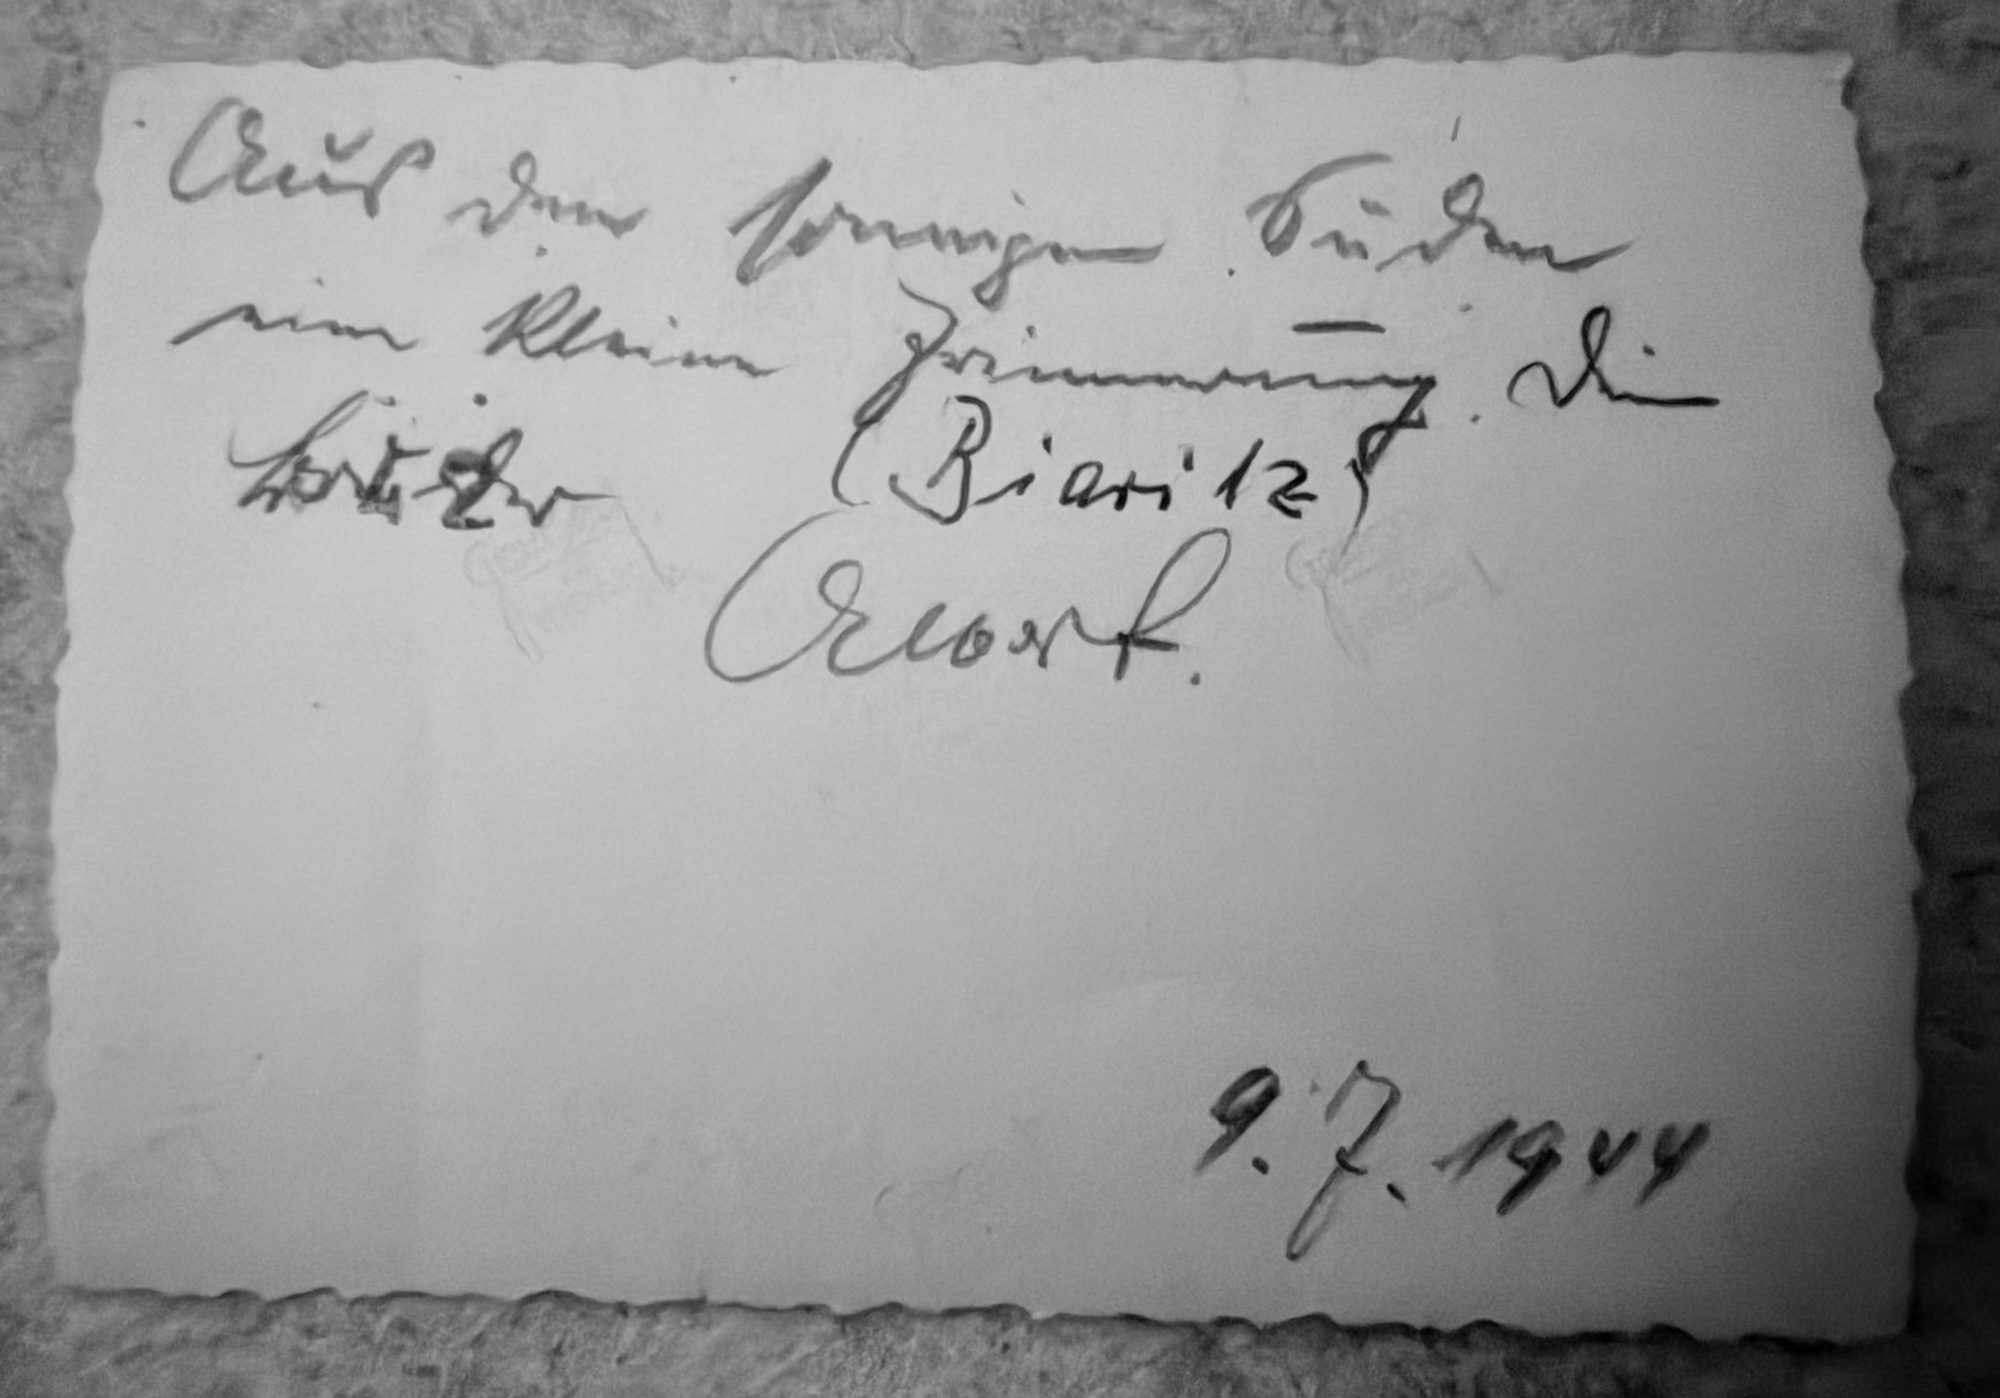 Aus dem sonnigen Süden
eine kleine Erinnerung. Dein
Bruder (Biaritz)
Albert.
9.7.1944